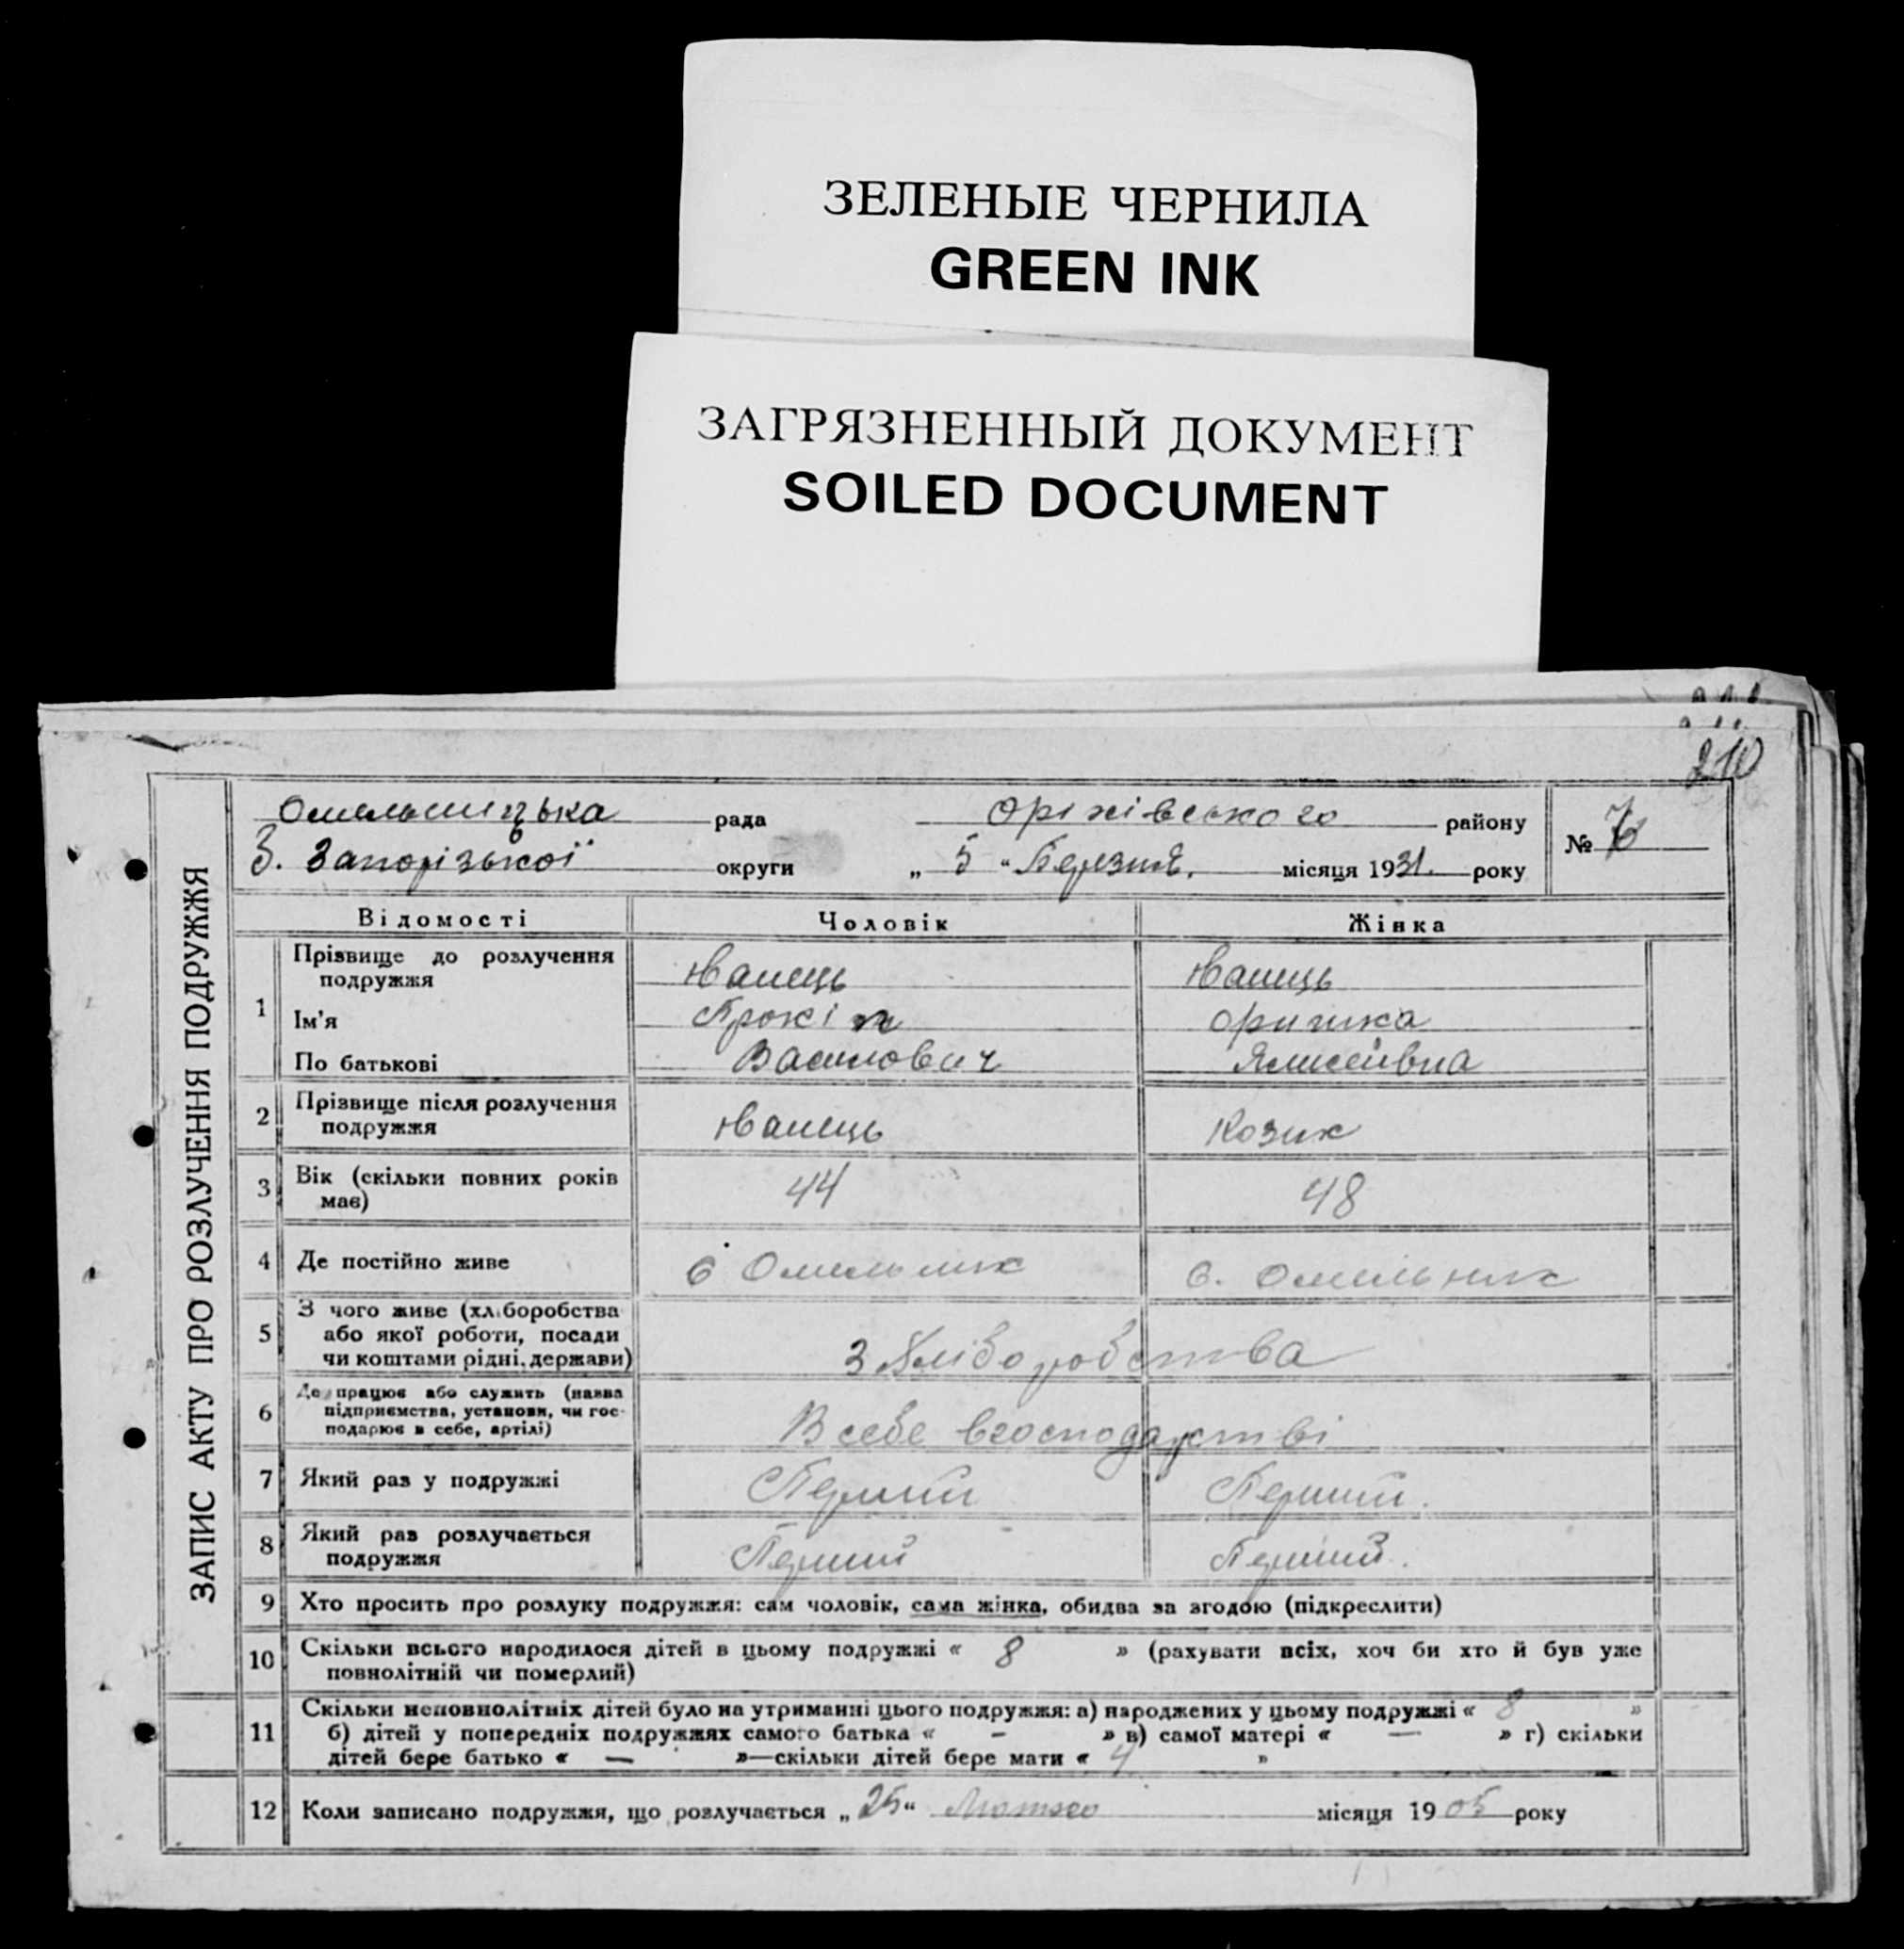 ЗЕЛЕНЫЕ ЧЕРНИЛА
GREEN INK
ЗАГРЯЗНЕННЫЙ ДОКУМЕНТ
SOILED DOCUMENT
210
ЗАПИС АКТУ ПРО РОЗЛУЧЕННЯ ПОДРУЖЖЯ
Омельницька рада Оріхівського району №
З. Запорізької округи „ 5 “ Березня. місяця 1931. року
Відомості Чоловік Жінка
1 Прізвище до розлучення подружжя Юванець Юванець
Ім'я Прокіп Оришка
По батькові Василович Єлисеївна
2 Прізвище після розлучення подружжя Юванець Козик
3 Вік (скільки повних років має) 44 48
4 Де постійно живе с Омельник с. Омельник
5 З чого живе (хліборобства або якої роботи, посади чи коштами рідні, держави) З Хліборобства
6 Де працює або служить (назва підприємства, установи, чи господарює в себе, артілі) В себе вгосподарстві
7 Який раз у подружжі Перший Перший.
8 Який раз розлучається подружжя Перший Перший.
9 Хто просить про розлуку подружжя: сам чоловік, сама жінка, обидва за згодою (підкреслити)
10 Скільки всього народилося дітей в цьому подружжі « 8 » (рахувати всіх, хоч би хто й був уже
повнолітній чи померлий)
11 Скільки неповнолітніх дітей було на утриманні цього подружжя: а) народжених у цьому подружжі « 8 »
б) дітей у попередніх подружжях самого батька « – » в) самої матері « — » г) скільки
дітей бере батько « — »—скільки дітей бере мати « 4 »
12 Коли записано подружжя, що розлучається „ 25 “ Лютого місяця 1905 року